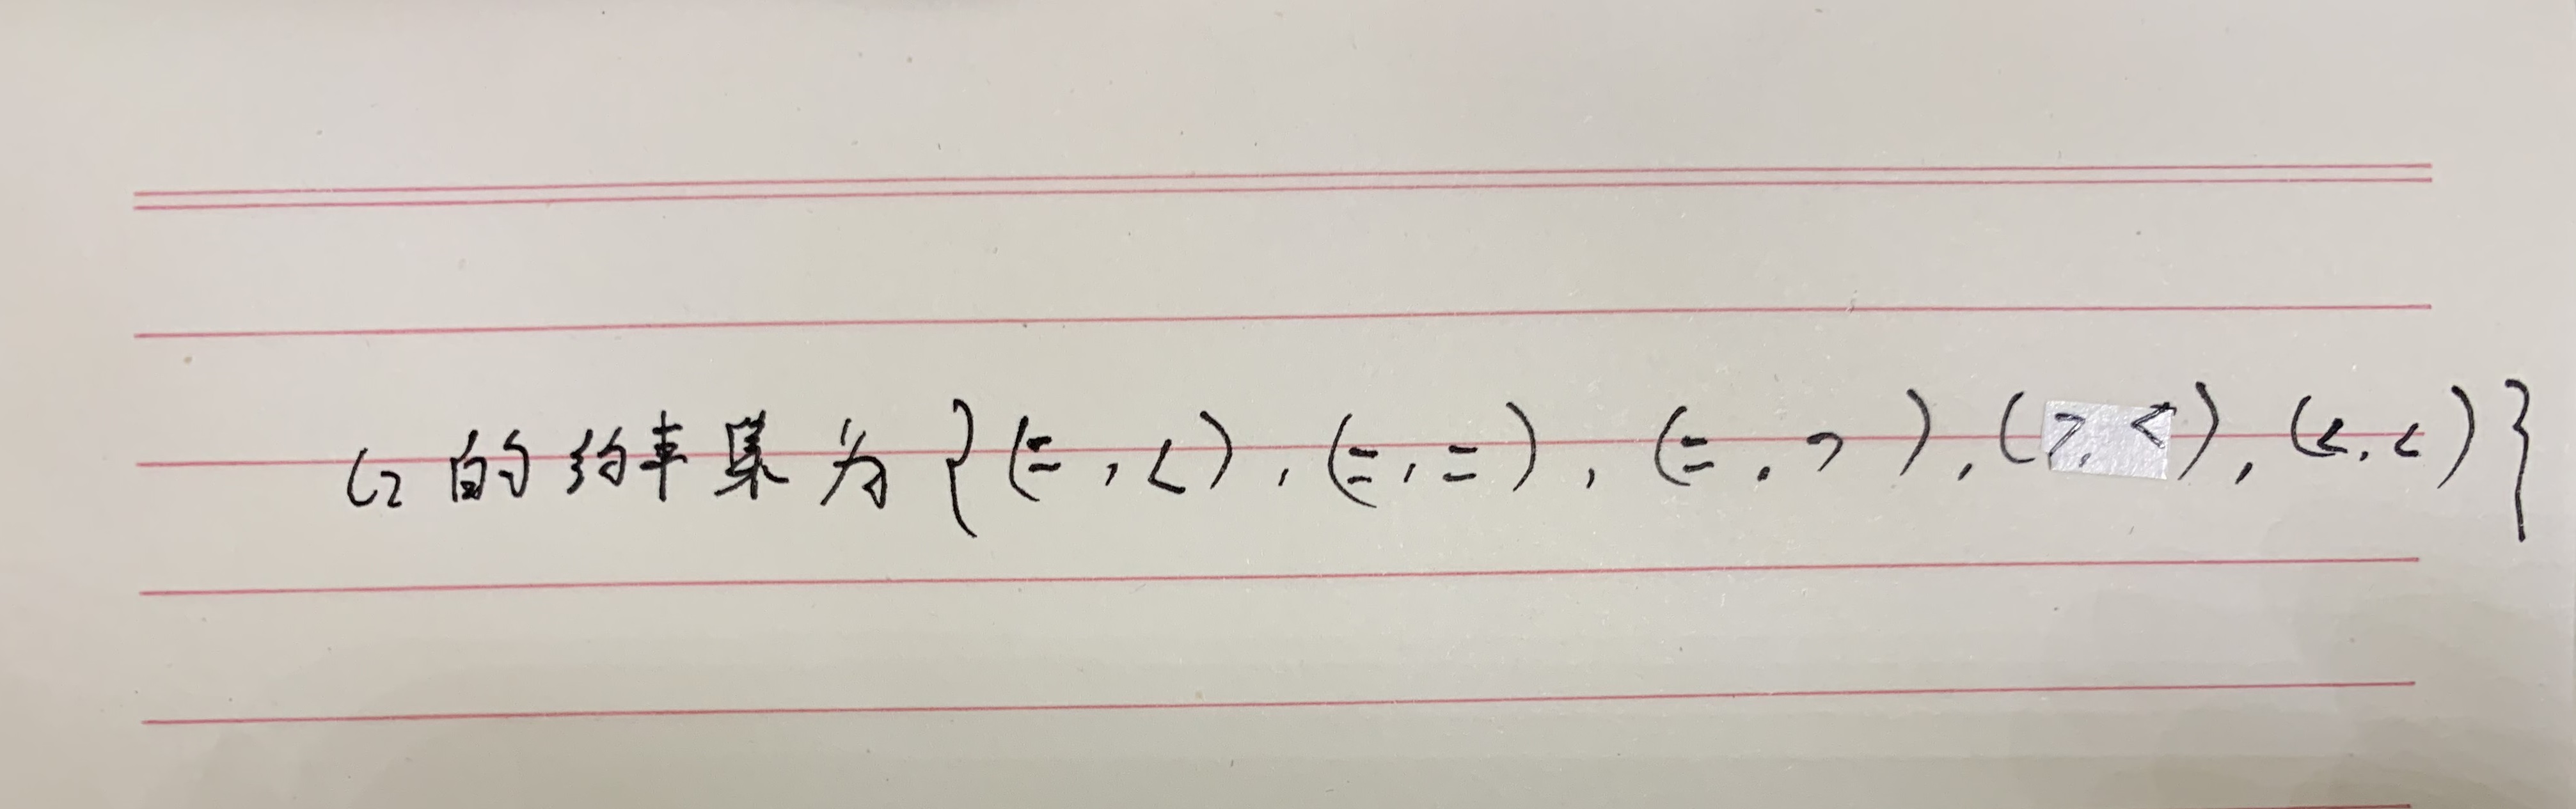 C2的约束集为{(=,<),(=,=),(=,>),(>,<),(<,<)}